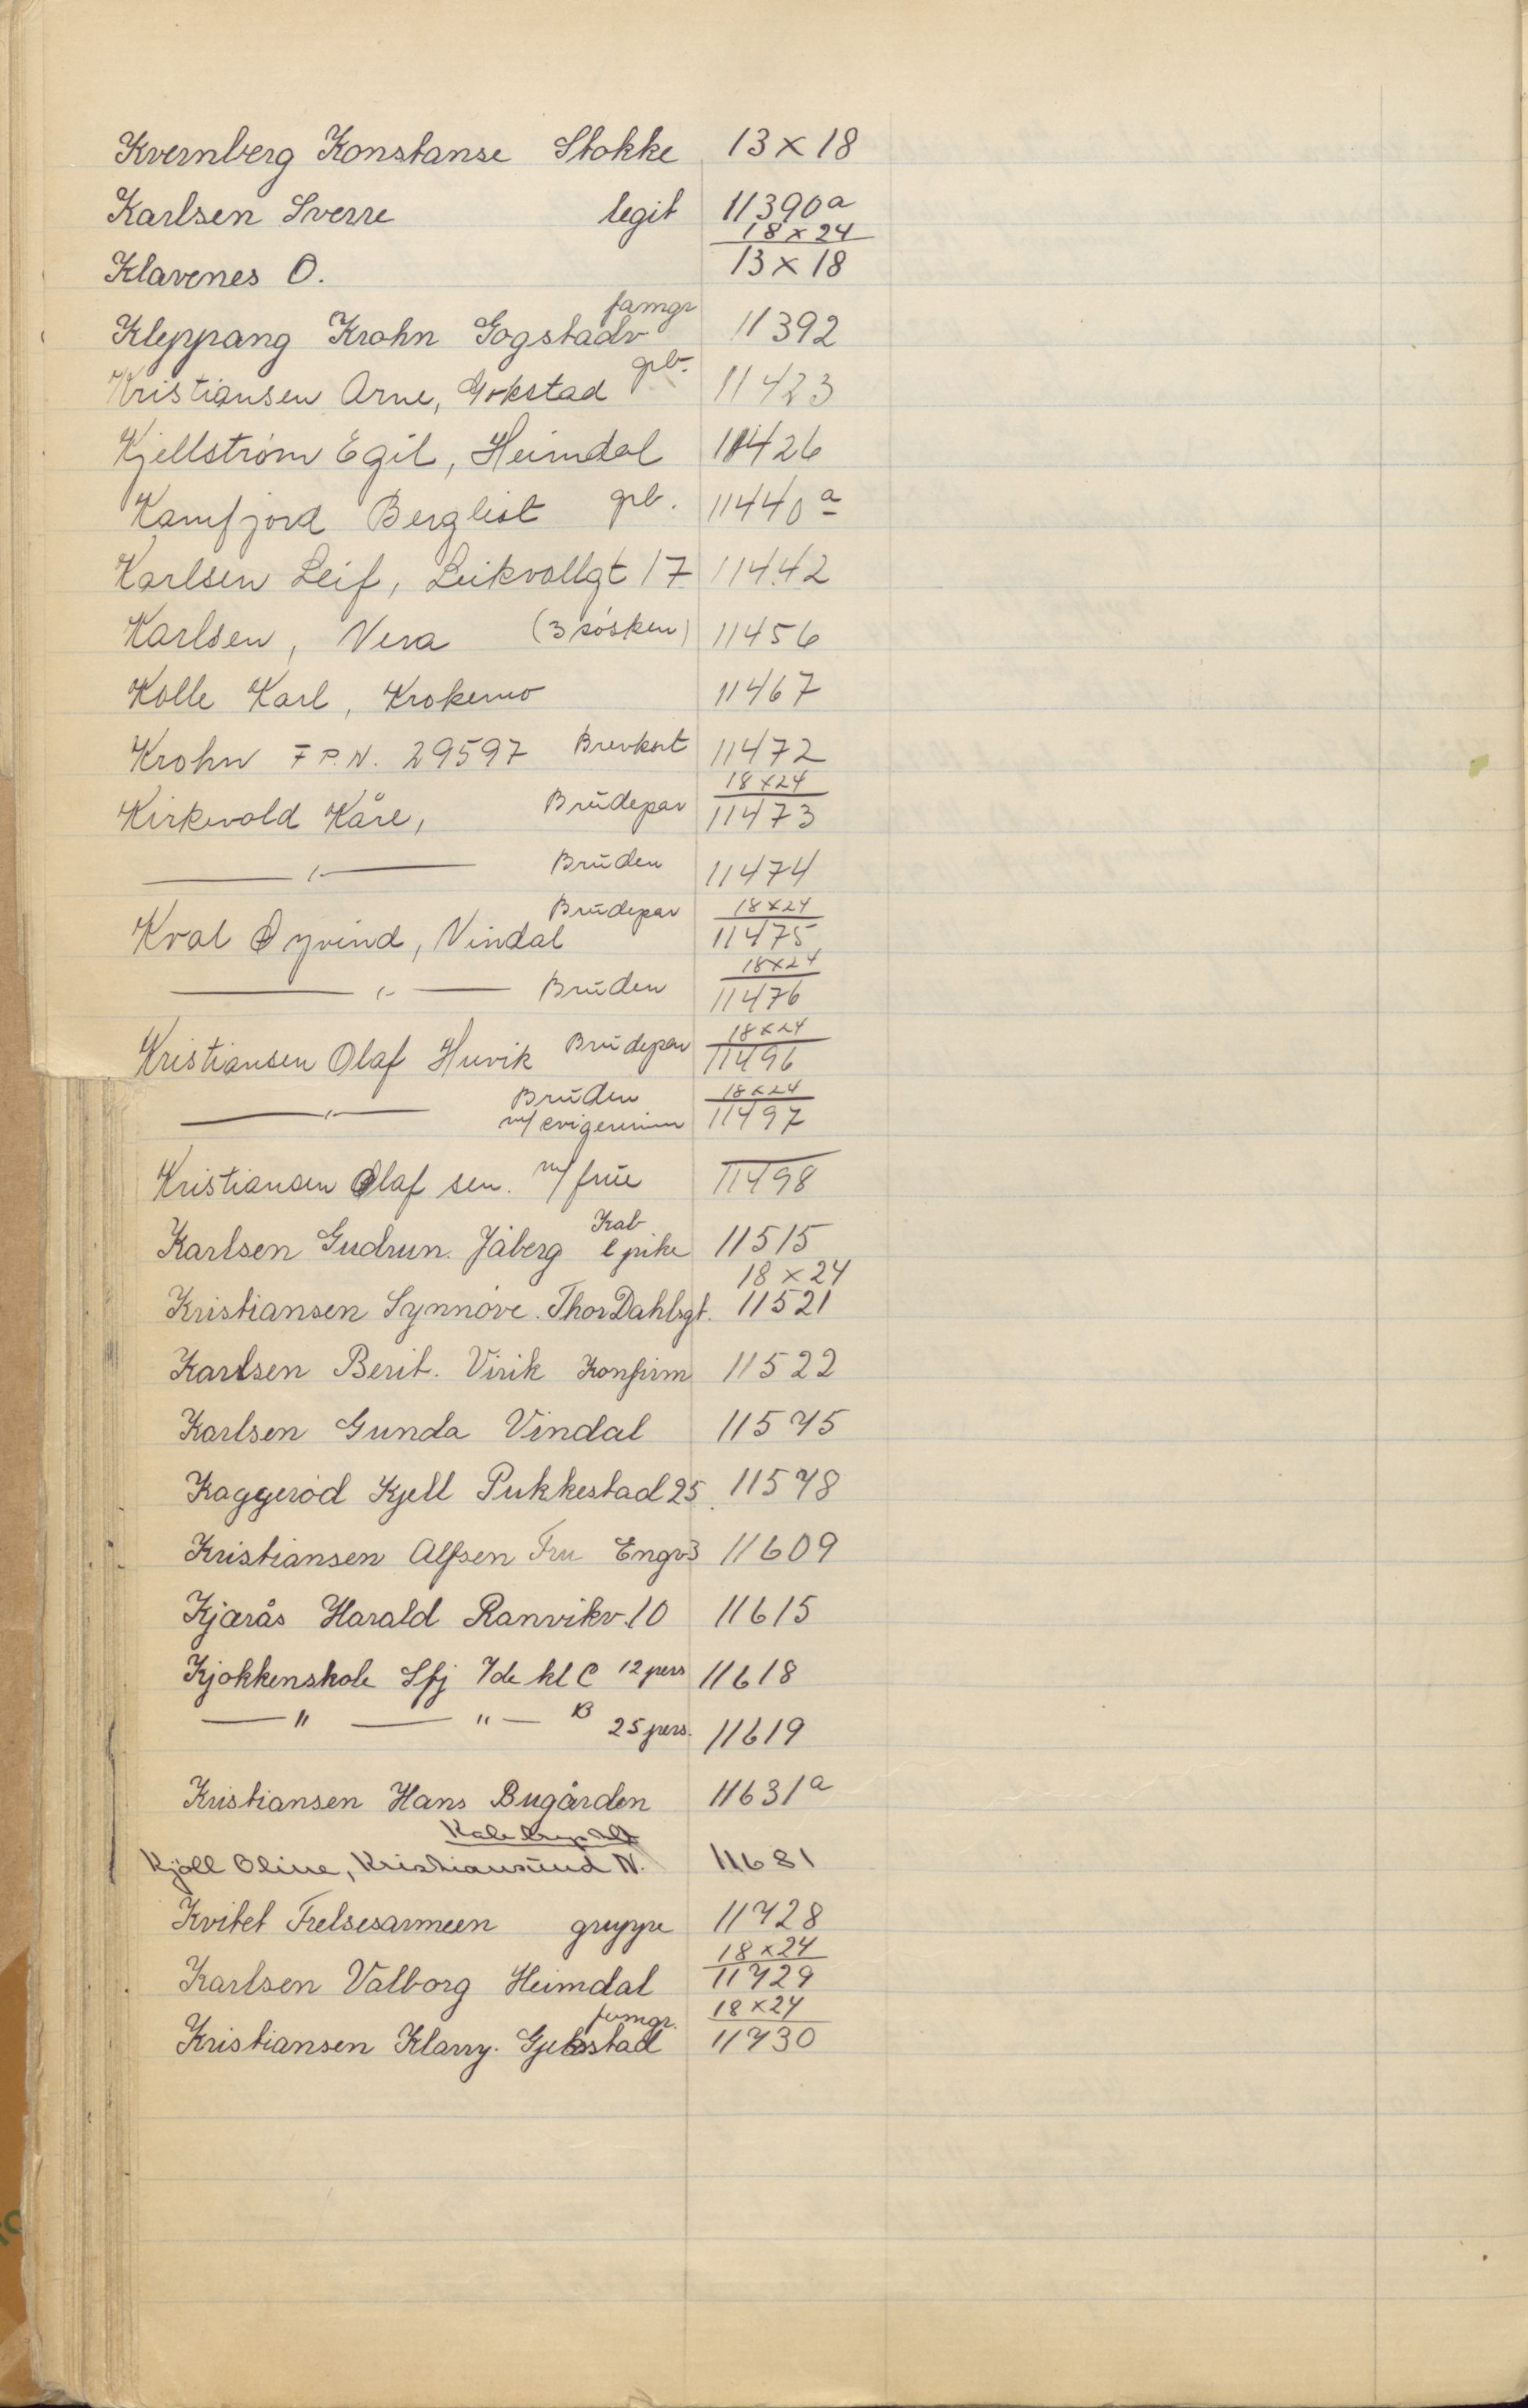 Kvernberg Konstanse Stokke 13 x 18
Karlsen Sverre legit 11390a
18 x 24
Klavenes O. 13 x 18
famgr
Kleppang Krohn Gogstadv 11392
grb.
Kristiansen Arne, Gokstad 11423
Kjellstrøm Egil, Heimdal 11426
Kamfjord Bergliot grb. 11440 a
Karlsen Leif, Leikvollgt 17 11442
Karlsen, Vera (3 søsken) 11456
Kolle Karl, Krokemo 11467
Krohn F P. N. 29597 Brevkort 11472
18 x 24
Kirkevold Kåre, Brudepar 11473
—〃— Bruden 11474
Brudepar 18 x 24
Kval Øyvind, Vindal 11475
18 x 24
—〃— Bruden 11476
18 x 24
Kristiansen Olaf Huvik Brudepar 11496
Bruden 18 x 24
—〃— m/ svigerinnen 11497
Kristiansen Olaf sen. m/ frue 11498
Kab
Karlsen Gudrun. Jåberg l pike 11515
18 x 24
Kristiansen Synnøve. Thor Dahlsgt. 11521
Karlsen Berit. Virik Konfirm 11522
Karlsen Gunda Vindal 11575
Kaggerød Kjell Pukkestad 25 11578
Kristiansen Alfsen Fru Engv3 11609
Kjærås Harald Ranvikv. 10 11615
Kjøkkenskole Sfj 7de kl C 12 pers 11618
—〃— —〃— B 25 pers. 11619
Kristiansen Hans Bugården 11631a
Kjöll Oline, Kristiansund N. 11681
Kvitet Frelsesarmeen gruppe 11728
18 x 24
Karlsen Valborg Heimdal 11729
famgr. 18 x 24
Kristiansen Klarry. 11730